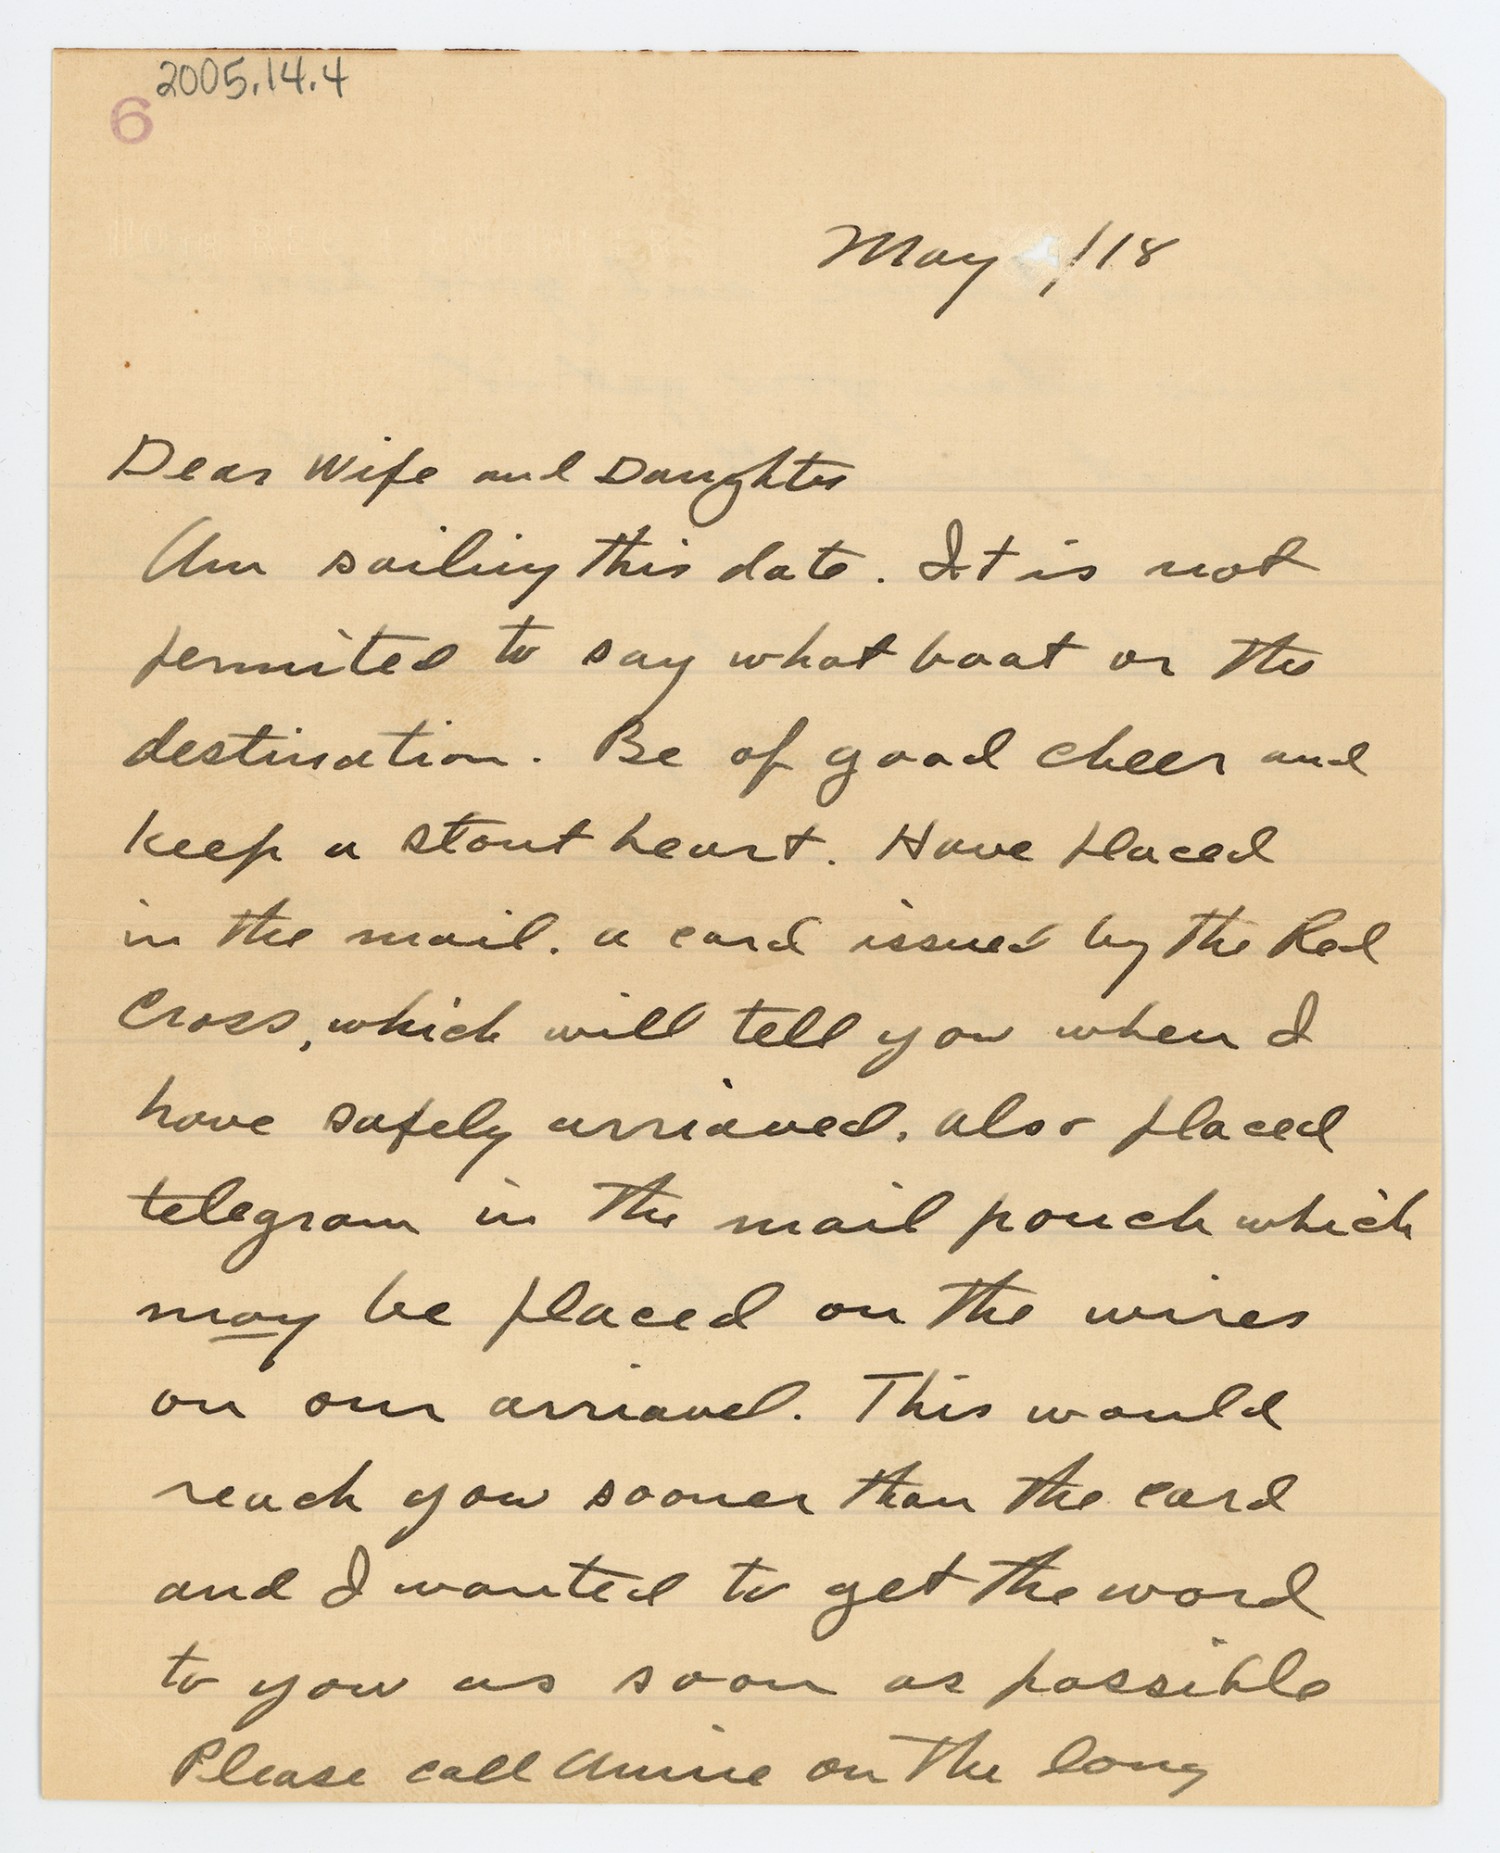 2005.14.4
6
May , / 18
Dear Wife and Daughter
Am sailing this date. It is not
permited to say what boat or the
destination. Be of good cheer and
keep a stout heart. Have placed
in the mail. a card issued by the Red
Cross, which will tell you when I
have safely arriaved. also placed
telegram in the mail pouch which
may be placed on the wires
on our arriavel. This would
reach you sooner than the card
and I wanted to get the word
to you as soon as possible
Please call Annie on the long